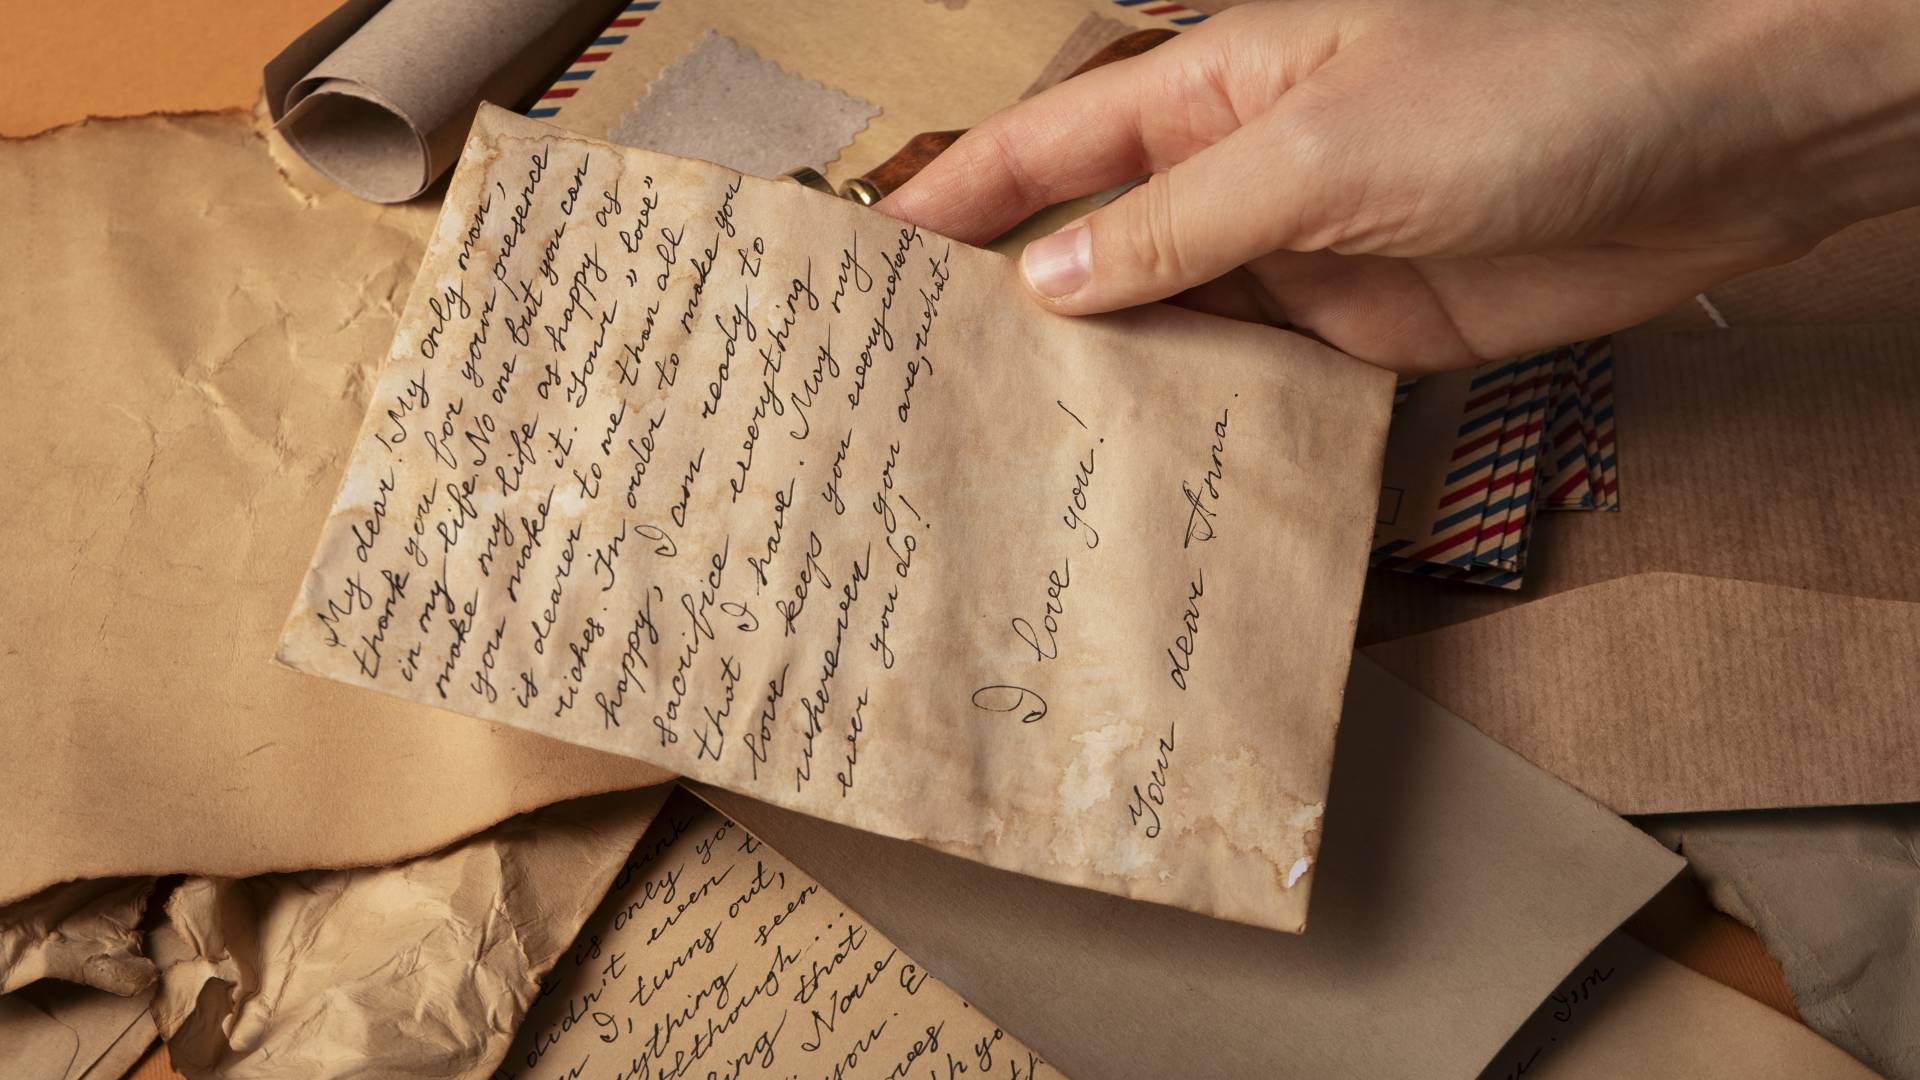 My dear! My only man,
thank you for your presence
in my life. No one but you can
make my life as happy as
you make it. Your "love"
is dearer to me than all
riches. In order to make you
happy, I am ready to
sacrifice everything
that I have. May my
love keeps you everywhere,
wherever you are, what-
ever you do!
I love you!
Your dear Anna.
think
is only you
didn't even
I, turns out,
seen
although...
that
None
you.